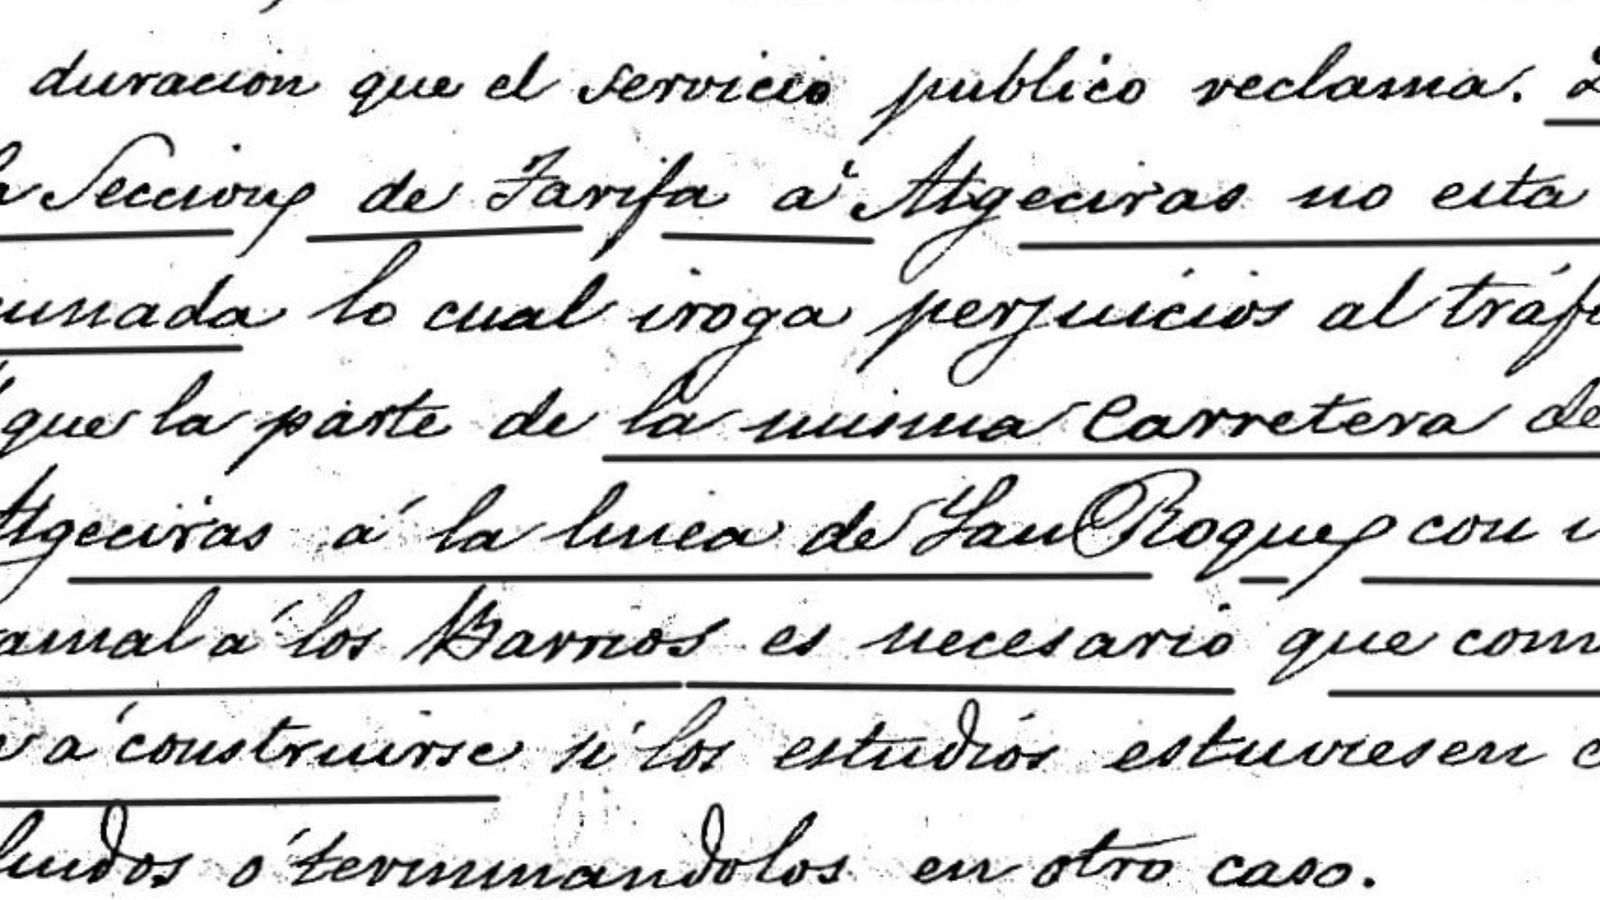 duracion que el servicio publico reclama.
Seccion de Tarifa á Algeciras no esta
lo cual iroga perjuicios al tráf
que la parte de la misma Carretera de
Algeciras á la linea de San Roque con
amal á los Barrios es necesario que com
á construirse si los estudios estuviesen c
luidos ó terminandolos en otro caso.